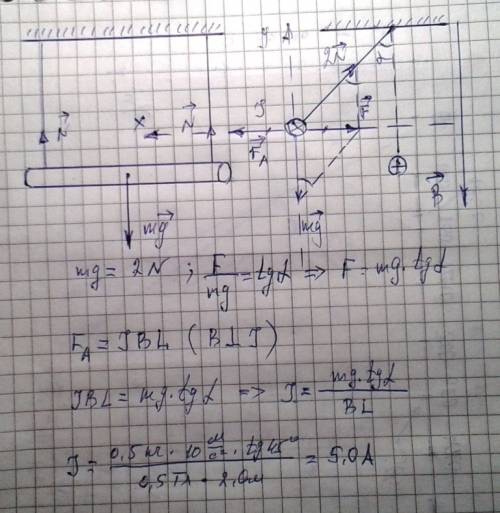 N⃗
x
N⃗
mg⃗
J
2N⃗
α
J
F⃗
F⃗_A
+
B⃗
mg⃗
mg = 2N ; F/mg = tgα => F = mg·tgα
F_A = JBL (B⊥J)
JBL = mg·tgα => J = mg·tgα / BL
J = 0,5кг · 10 м/с² · tg45° / 0,5Тл · 2,0м = 5,0A